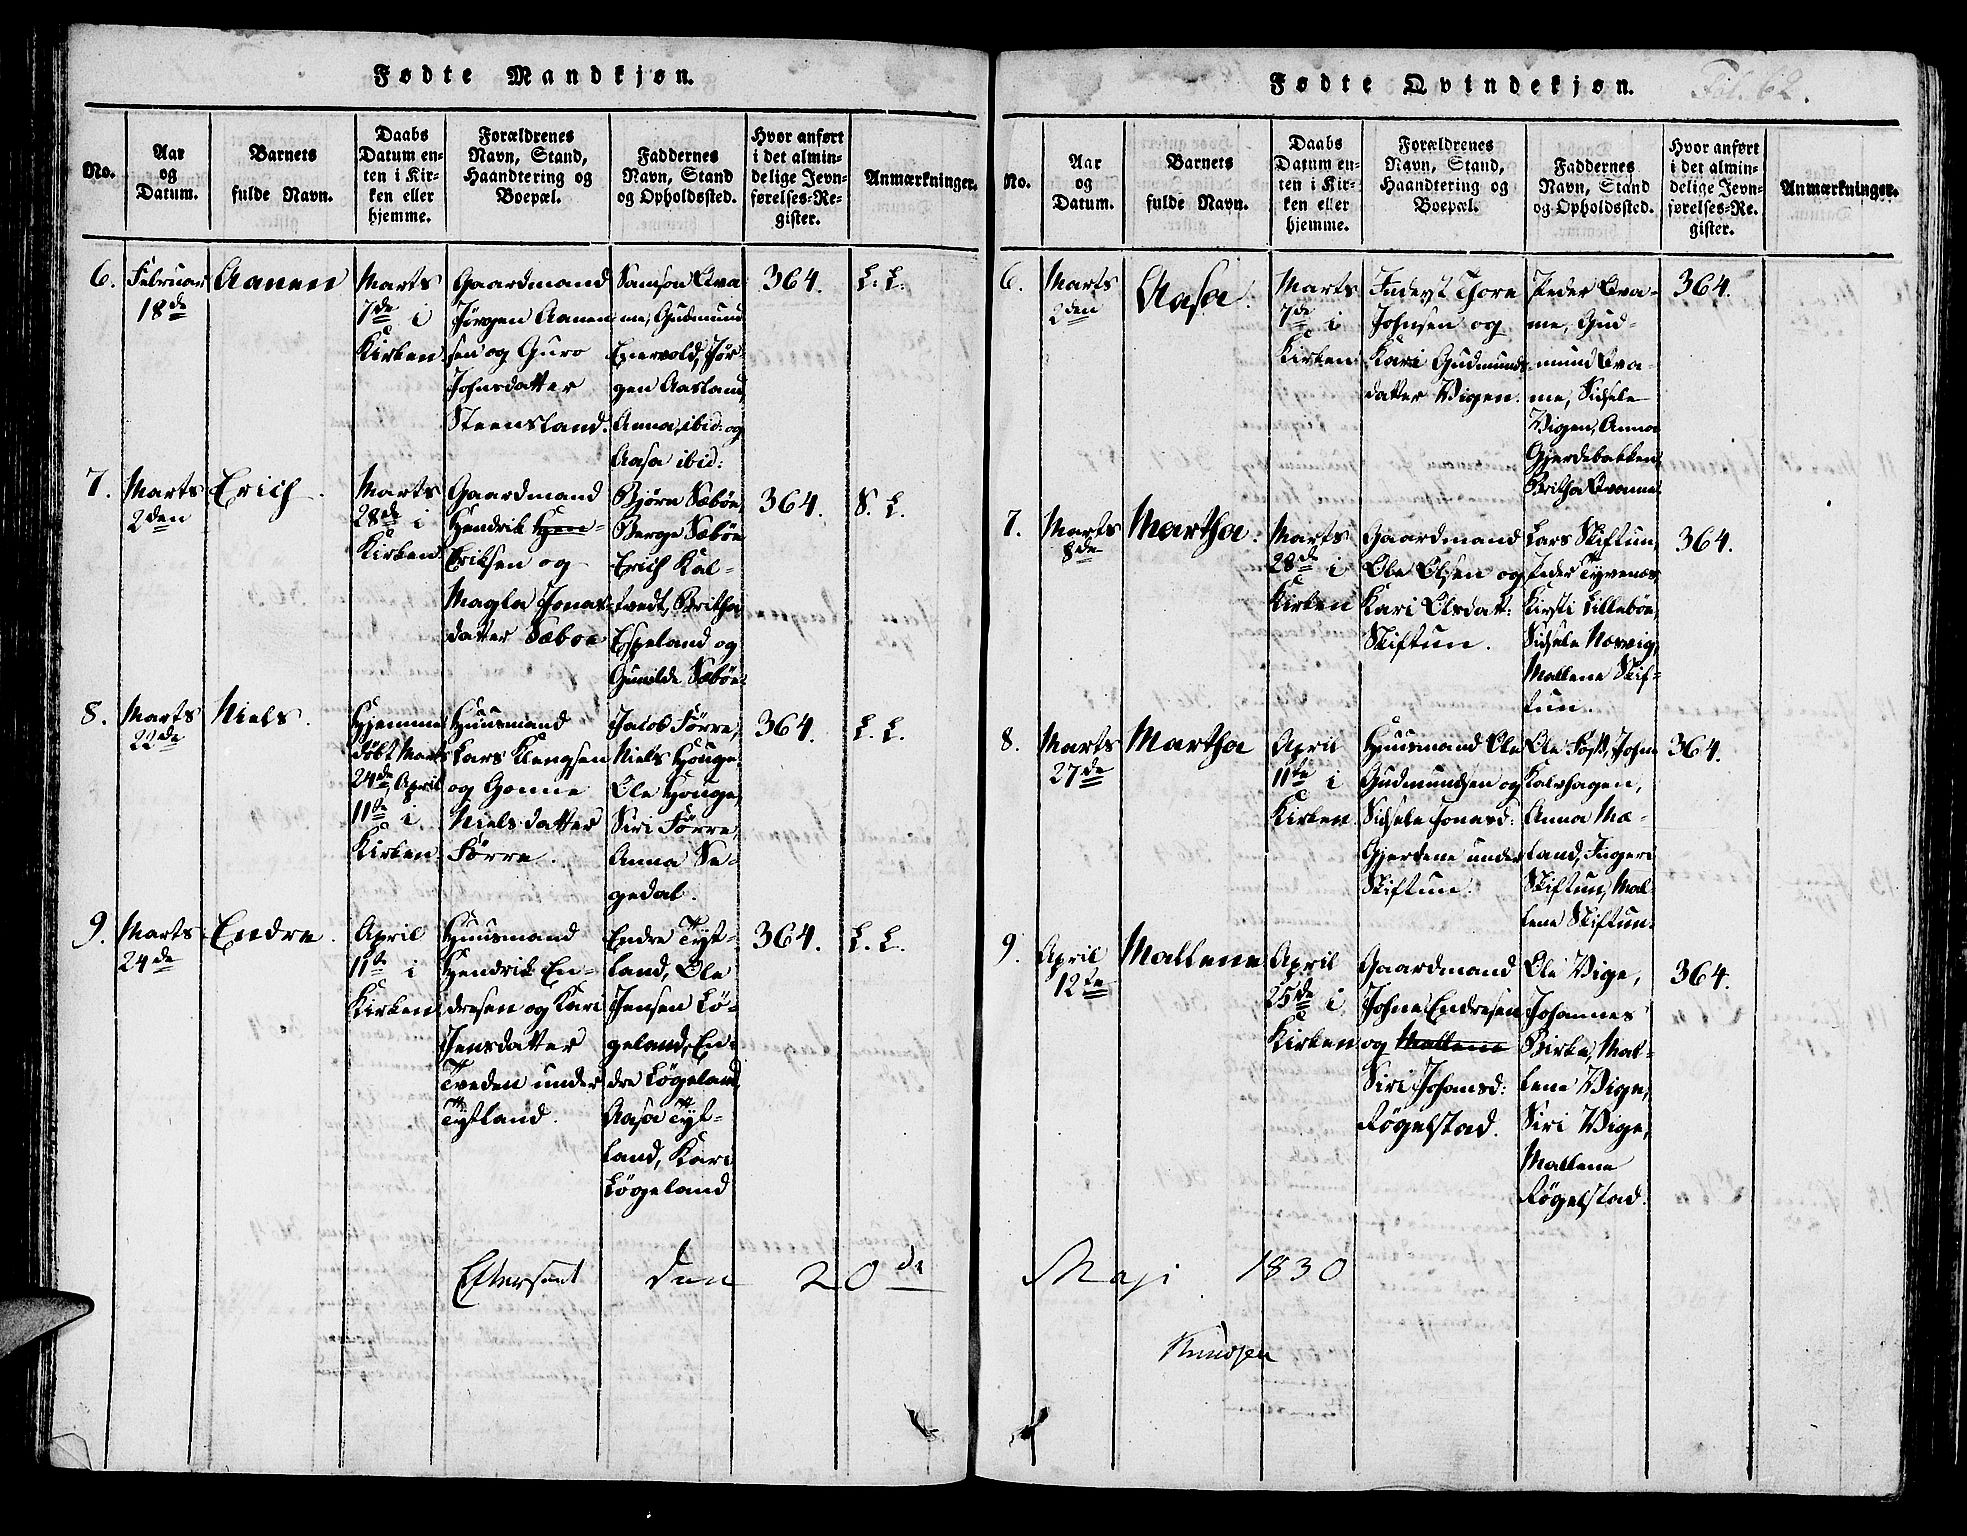 Fødte Mandkjøn.
No.
Aar
og
Datum.
Barnets
fulde Navn.
Daabs
Datum en-
ten i Kir-
ken eller
hjemme.
Forældrenes
Navn, Stand,
Haandtering og
Boepæl.
Faddernes
Navn, Stand
og Opholdssted.
Hvor anført
i det almin-
delige Jevn-
førelses-Re-
gister.
Anmærkninger.
6.
Februar
18de
Aanen
Marts
7de i
Kirken
Gaardmand
Jørgen Aanen
sen og Guro
Johnsdatter
Steensland.
Samson Qva
me, Gudmund
Enervold, Jør-
gen Aasland,
Anna, ibid: og
Aasa ibid:
364.
L. L.
7.
Marts
2den
Erich.
Marts
28de i
Kirken
Gaardmand
Hendrik Hen-
Eriksen og
Magla Jonas-
datter Sæboe
Bjørn Sæbøe,
Berge Sæbøe
Erich Kal-
tvedt, Britha
Espeland og
Gunilde Sæbøe
364.
S. L.
8.
Marts
22de
Niels.
Hjemme
døbt Marts
24de, April
11te i
Kirken
Huusmand
Lars Klengsen
og Gonne
Nielsdatter
Førre.
Jacob Førre,
Niels Houge
Ole Houge,
Siri Førre,
Anna Se-
gedal.
364.
L. L.
9.
Marts
24de
Endre.
April
11te i
Kirken
Huusmand
Hendrik En-
dresen og Kari
Jensdatter
Tveden under
Tysland.
Endre Tys-
land, Ole
Jensen Lø-
geland, En-
dre Løgeland,
Aasa Tys-
land, Kari
Løgeland
364.
L. L.
Fødte Qvindekjøn.
Fol. 62.
No.
Aar
og
Datum.
Barnets
fulde Navn.
Daabs
Datum en-
ten i Kir-
ken eller
hjemme.
Forældrenes
Navn, Stand,
Haandtering og
Boepæl.
Faddernes
Navn, Stand
og Opholdssted.
Hvor anført
i det almin-
delige Jevn-
førelses-Re-
gister.
Anmærkninger.
6.
Marts
2den
Aasa.
Marts
7de i
Kirken
Inderst Thore
Johnsen og
Kari Gudmunds
datter Vigen.
Peder Qva-
me, Gud-
mund Qva-
me, Sidsele
Vigen, Anna
Gjerdebakken,
Britha Qvame
364.
7.
Marts
8de
Martha.
Marts
28de i
Kirken
Gaardmand
Ole Olsen og
Kari Olsdatt:
Skiftun.
Lars Skiftun,
Peder Tyvenæs,
Kirsti Lillebøe,
Sidsele Norvig,
Mallene Skif-
tun.
364.
8.
Marts
27de
Martha
April
11te i
Kirken
Huusmand Ole
Gudmundsen og
Sidsele Jonasd:
Gjerdene under
Skiftun.
Ole Fosß, John
Kalvhagen,
Anna Mæ-
land, Ingeri
Skiftun, Mal-
lene Skiftun.
364.
9.
April
12te
Mallene
April
25de i
Kirken
Gaardmand
Johne Endresen
og Mallene
Siri Johansd:
Føgelstad.
Ole Vige,
Johannes
Birke, Mal-
lene Vige,
Siri Vige,
Mallene
Føgelstad.
364.
Efterseet den 20de Maji 1830
Knudsen